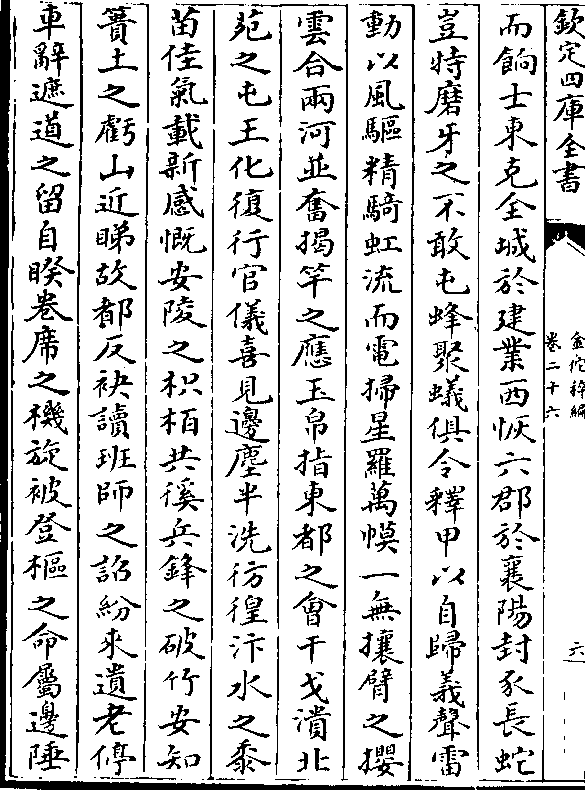 欽定四庫全書
金佗稡編
卷二十六
六
而餉士東克全城於建業西恢六郡於襄陽封豕長蛇
豈特磨牙之不敢屯蜂聚蟻俱令釋甲以自歸義聲雷
動以風驅精騎虹流而電掃星羅萬幙一無攘臂之攖
雲合兩河並奮揭竿之應玉帛指東都之會干戈潰北
苑之屯王化復行官儀喜見邊塵半洗彷徨汴水之黍
苗佳氣載新感慨安陵之枳栢共徯兵鋒之破竹安知
簣土之虧山近睇故都反袂讀班師之詔紛来遺老停
車辭遮道之留自睽卷席之機旋被登樞之命屬邊陲